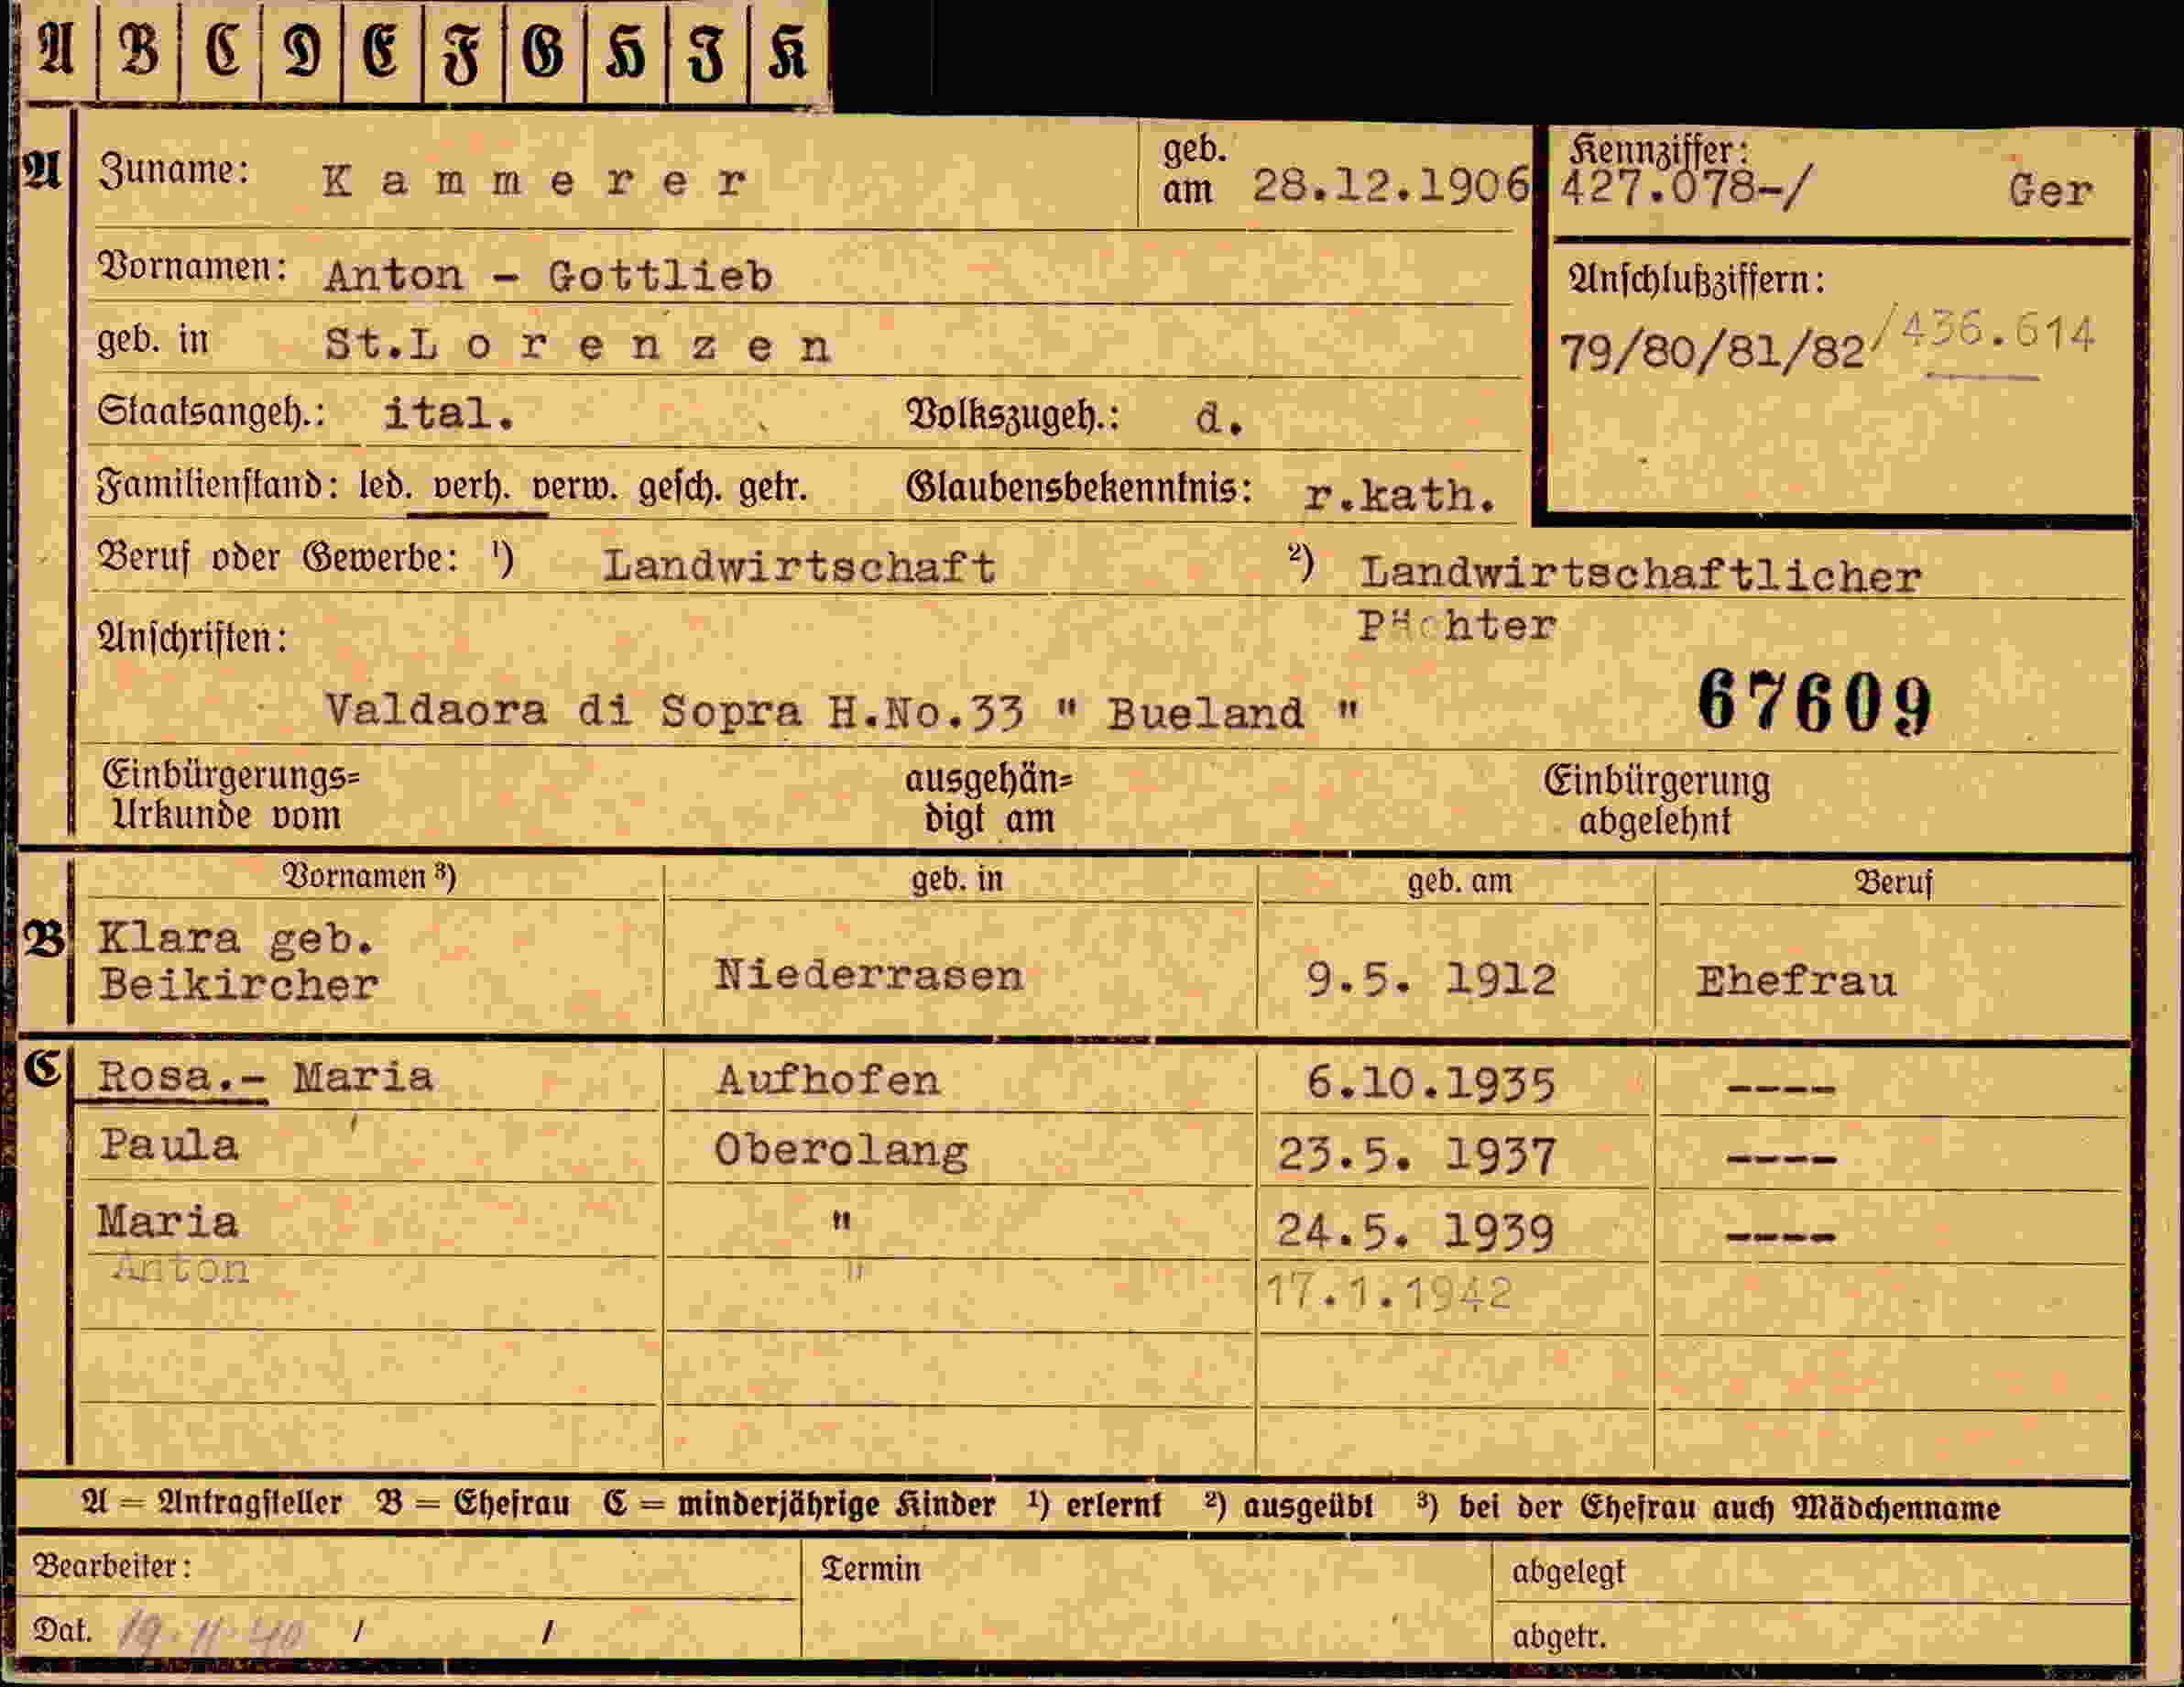 A B C D E F G H I K
A Zuname: Kammerer geb. am 28.12.1906 Kennziffer: 427.078-/ Ger
Vornamen: Anton - Gottlieb
Anschlußziffern:
geb. in St.Lorenzen
79/80/81/82/436.614
Staatsangeh.: ital. Volkszugeh.: d.
Familienstand: led. verh. verw. gesch. getr. Glaubensbekenntnis: r.kath.
Beruf oder Gewerbe: ¹) Landwirtschaft ²) Landwirtschaftlicher
Pächter
Anschriften:
Valdaora di Sopra H.No.33 " Bueland "
67609
Einbürgerungs= ausgehän= Einbürgerung
Urkunde vom digt am abgelehnt
Vornamen ³) geb. in geb. am Beruf
B Klara geb.
Beikircher Niederrasen 9.5. 1912 Ehefrau
C Rosa.- Maria Aufhofen 6.10.1935 ----
Paula Oberolang 23.5. 1937 ----
Maria " 24.5. 1939 ----
Anton " 17.1.1942
A = Antragsteller B = Ehefrau C = minderjährige Kinder ¹) erlernt ²) ausgeübt ³) bei der Ehefrau auch Mädchenname
Bearbeiter: Termin abgelegt
Dat. 19.11.40 / / abgetr.